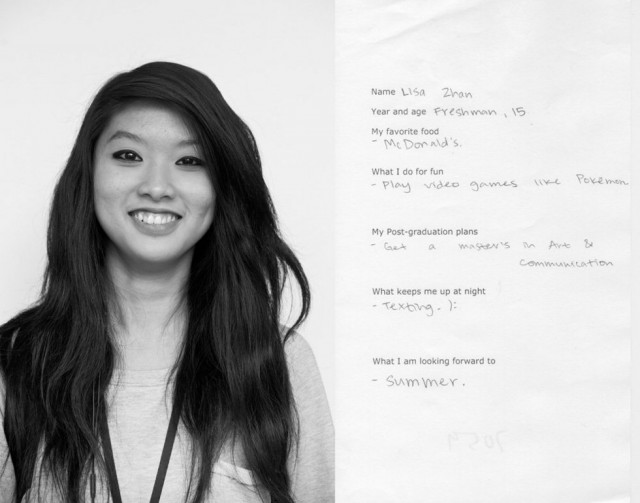 Name Lisa Zhan
Year and age Freshman, 15
My favorite food
- McDonald's.
What I do for fun
- Play video games like Pokemon
My Post-graduation plans
- Get a master's in Art &
communication
What keeps me up at night
- Texting. ):
What I am looking forward to
- Summer.